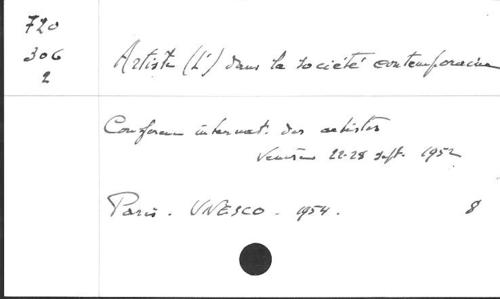 720
306
2
Artiste (L') dans la société contemporaine
Conférence internat. des artistes
Venise 22-28 sept. 1952
Paris. UNESCO. 1954. 8